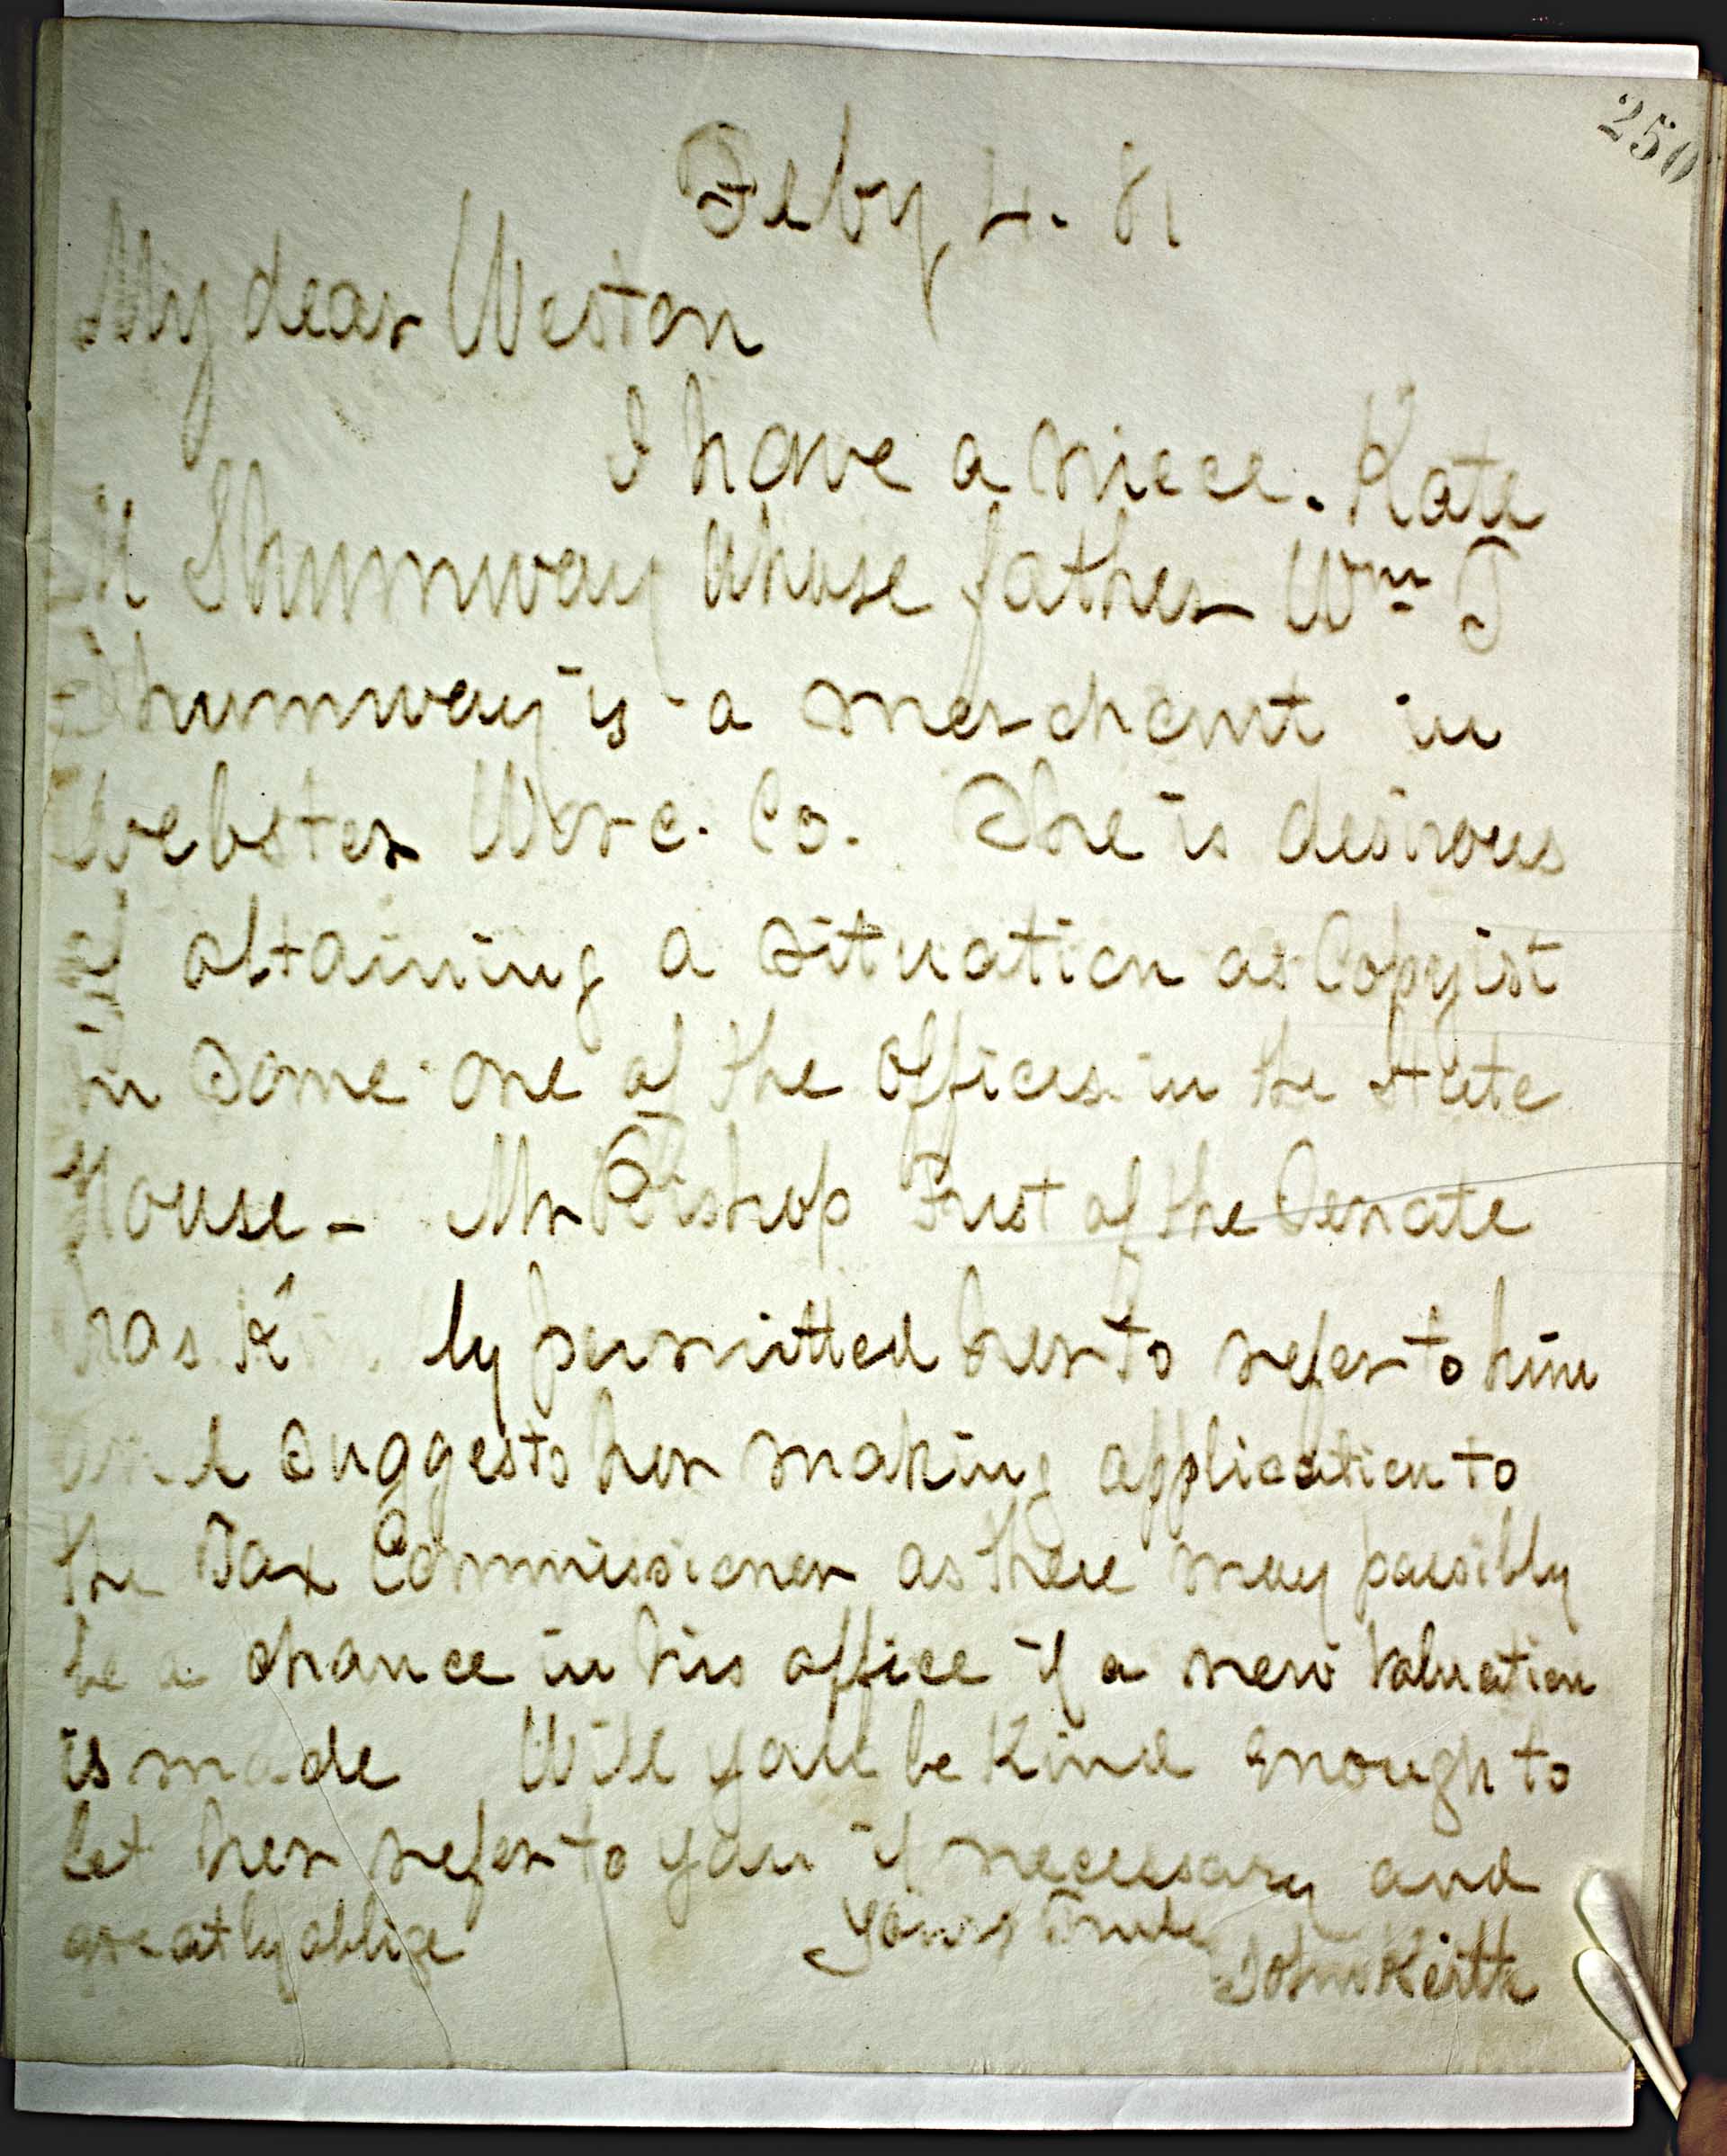 250
Feby 4. 81
My dear Weston
I have a niece. Kate
M Shumway whose father Wm T
Shumway is a merchant in
Webster Worc. Co. She is desirous
of obtaining a situation as Copyist
in some one of the offices in the State
House - Mr Bishop Prest of the Senate
has k ly permitted her to refer to him
and suggests her making application to
the Tax Commissioner as there may possibly
be a chance in his office if a new valuation
is made Will you be kind enough to
let her refer to you if necessary and
greatly oblige Yours Truly
John Keith